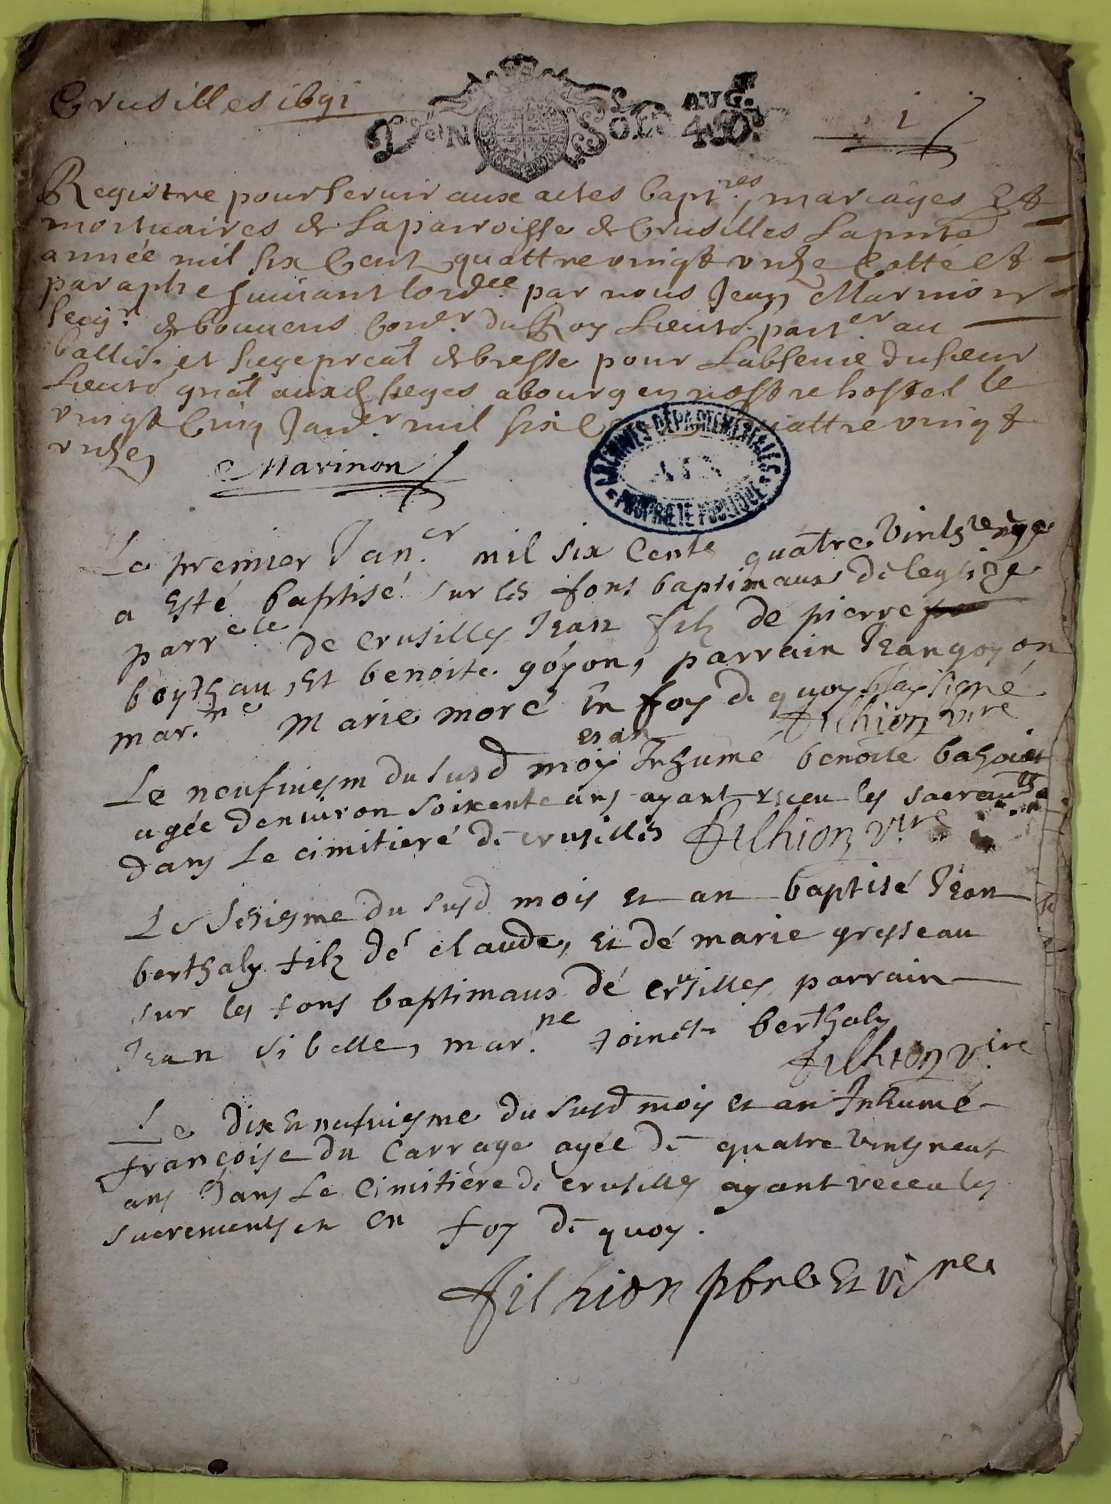 Crusilles 1691
DEN SOLS AUG. 4 D.
i
Registre pour servir aux actes bapt.res, mariages Et
mortuaires de La parroisse de Crusilles La pnte
année mil six Cent quattre vingt unze Cotté et
paraphe suivant lord.ce par nous Jean Marinon
seig.r de bouvens Con.er du Roy Lieutō. part.er au
balli. et siege preāl de bresse pour Labsence du sieur
Lieutō gnāl auxd sieges a bourg en nostre hostel le
vingt Cinq Janv.er mil six quattre vingt
unze
Marinon
ARCHIVES DÉPARTEMENTALES
AIN
PROPRIÉTÉ PUBLIQUE
Le premier Jan.er mil six Cents quatre vints
a esté baptisé sur les fons baptimaux de leglize
parr.elle de crusilles Jean filz de pierre
boythau, Et benoite goyon, parrain Jean goyon
mar.ne Marie moré En foy de quoy Jay signé
filhion v.ire
et an
Le neufviesm du susd mois Inhumé benoite
agée denviron soixente ans ayant receu les sacrauts
dans Le cimitieré de crusilles filhion v.ire
Le sesiesme du susd mois et an baptisé Jean
berthaly filz dé claude, et dé marie gresseau
sur les fons baptimaus dé crusilles, parrain
Jean sibelle, mar.ne toineta berthaly
filhion v.ire
Le dix et neufviesme du susd mois et an Inhumé
françoise du Carrage agée de quatre vingt neuf
ans dans Le Cimitiére de crusilles ayant receu les
sacrements et en foy de quoy.
filhion pbre Et vi.re